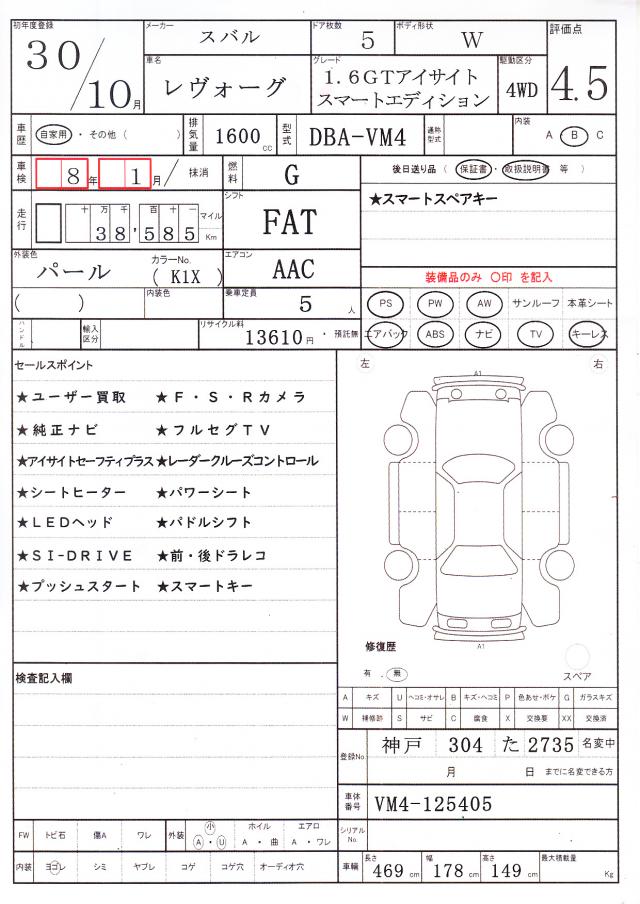 初年度登録 30/10月
メーカー スバル
ドア枚数 5
ボディ形状 W
評価点 4.5
車名 レヴォーグ
グレード 1.6GTアイサイト
スマートエディション
駆動区分 4WD
車歴 自家用・その他( )
排気量 1600cc
型式 DBA-VM4
通称型式
内装 A B C
車検 8年 1月/ 抹消
燃料 G
後日送り品 ( 保証書・取扱説明書 等 )
走行 十万千百十一 38,585 マイル Km
シフト FAT
★スマートスペアキー
外装色 パール
カラーNo. (K1X)
エアコン AAC
装備品のみ 〇印 を記入
( )
内装色
乗車定員 5人
PS PW AW サンルーフ 本革シート
ハンドル
輸入区分
リサイクル料 13610円・預託無
エアバック ABS ナビ TV キーレス
セールスポイント
★ユーザー買取 ★F・S・Rカメラ
★純正ナビ ★フルセグTV
★アイサイトセーフティプラス★レーダークルーズコントロール
★シートヒーター ★パワーシート
★LEDヘッド ★パドルシフト
★SI-DRIVE ★前・後ドラレコ
★プッシュスタート ★スマートキー
左 右
A1
A1
修復歴
有 . 無
スペア
検査記入欄
A キズ U ヘコミ・オサレ B キズ・ヘコミ P 色あせ・ボケ G ガラスキズ
W 補修跡 S サビ C 腐食 X 交換要 XX 交換済
登録No. 神戸 304 た 2735 名変中
月 日 までに名変できる方
車体番号 VM4-125405
シリアルNo.
FW トビ石 傷A ワレ
外装 小 A・U
ホイル A・曲
エアロ A・ワレ
内装 ヨゴレ シミ ヤブレ コゲ コゲ穴 オーディオ穴
車輛 長さ 469cm 幅 178cm 高さ 149cm 最大積載量 Kg